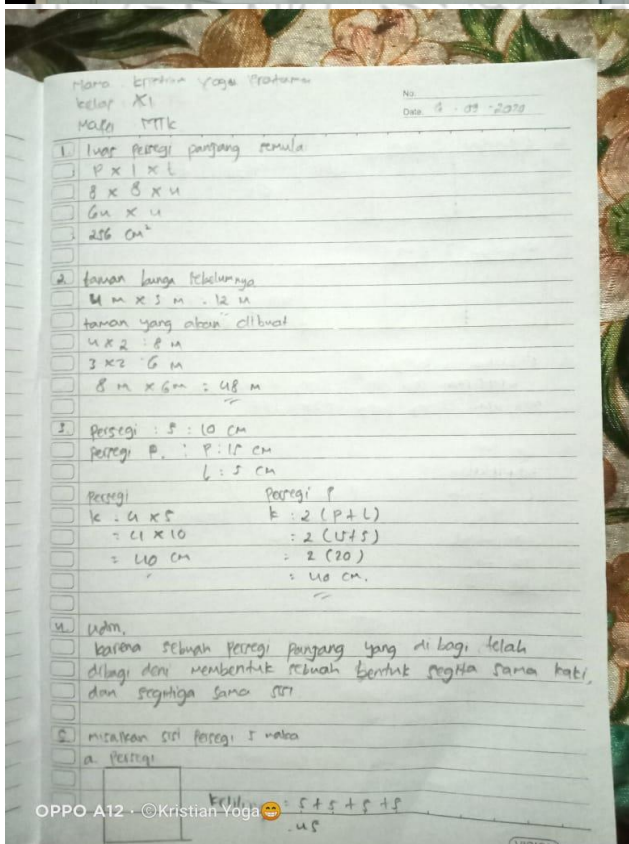 Nama Kristian Yoga Pratama
Kelas XI
Mapel MTK
No.
Date. - 09 - 2020
1. luas persegi panjang semula
P x l x t
8 x 8 x 4
64 x 4
256 cm²
2. taman bunga sebelumnya
4 m x 3 m : 12 m
taman yang akan dibuat
4 x 2 : 8 m
3 x 2 : 6 m
8 m x 6 m : 48 m
3. Persegi : s : 10 cm
persegi P. : P : 15 cm
l : 5 cm
Persegi Persegi P
k : 4 x s k : 2 (P + L)
= 4 x 10 : 2 (15+5)
= 40 cm : 2 (20)
: 40 cm.
4.
karena sebuah persegi panjang yang di bagi telah
dibagi deni membentuk sebuah bentuk segitia sama kaki,
dan segitiga sama sisi
5. misalkan sisi persegi s maka
a. Persegi
= s + s + s + s
: 4s
OPPO A12 · ©Kristian Yoga😁